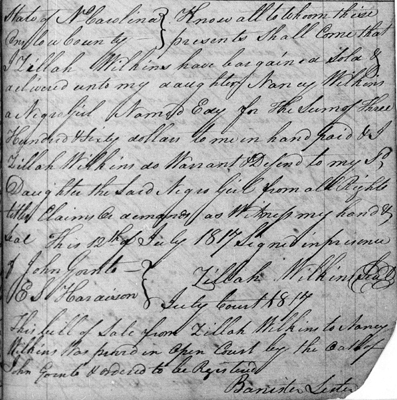 State of No Carolina } Know all to whom these
Onslow County } presents Shall Come that
I Zillah Wilkins have bargained Sold &
delivered unto my daughter Nancy Wilkins
a Negro Girl Named Edy for the Sum of Three
Hundred & Sixty dollars to me in hand paid & I
Zillah Wilkins do Warrant & Defend to my Sd
Daughter the said Negro Girl from all Rights
titles Claims & demands as Witness my hand &
seal This 12th of July 1817 Signed in presence
of John Gornto } Zillah Wilkins (Seal)
E S } July Court 1817
This bill of Sale from Zillah Wilkins to Nancy
Wilkins Was proved in Open Court by the Oath of
John Gornto & ordered to be Registered
Banister Lester